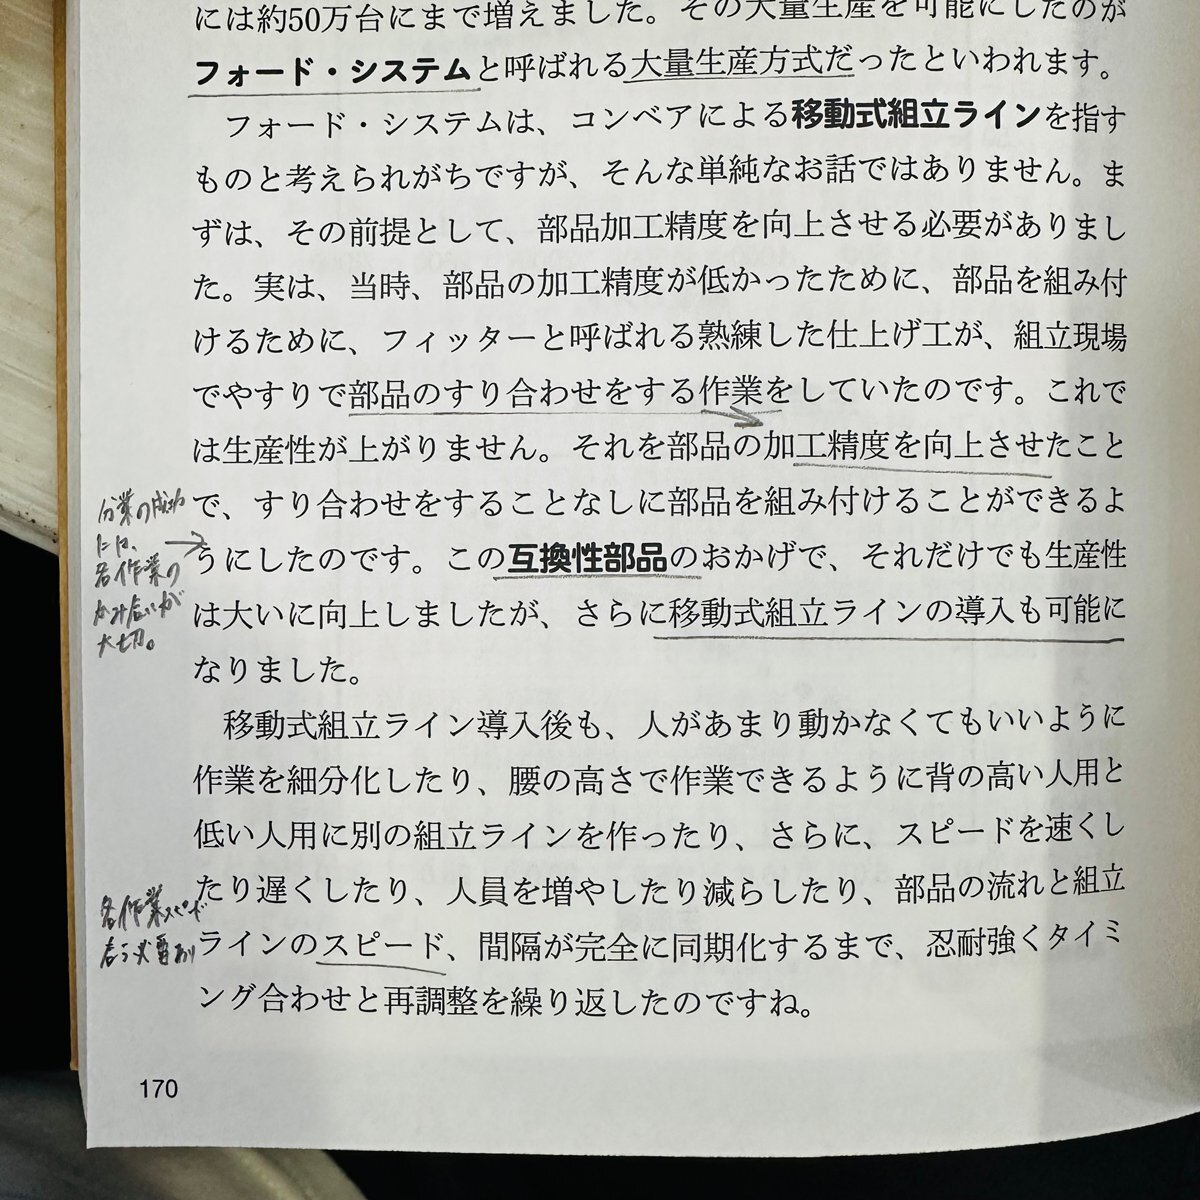 には約50万台にまで増えました。その大量生産を可能にしたのが
フォード・システムと呼ばれる大量生産方式だったといわれます。
フォード・システムは、コンベアによる移動式組立ラインを指す
ものと考えられがちですが、そんな単純なお話ではありません。ま
ずは、その前提として、部品加工精度を向上させる必要がありまし
た。実は、当時、部品の加工精度が低かったために、部品を組み付
けるために、フィッターと呼ばれる熟練した仕上げ工が、組立現場
でやすりで部品のすり合わせをする作業をしていたのです。これで
は生産性が上がりません。それを部品の加工精度を向上させたこと
で、すり合わせをすることなしに部品を組み付けることができるよ
うにしたのです。この互換性部品のおかげで、それだけでも生産性
は大いに向上しましたが、さらに移動式組立ラインの導入も可能に
なりました。
移動式組立ライン導入後も、人があまり動かなくてもいいように
作業を細分化したり、腰の高さで作業できるように背の高い人用と
低い人用に別の組立ラインを作ったり、さらに、スピードを速くし
たり遅くしたり、人員を増やしたり減らしたり、部品の流れと組立
ラインのスピード、間隔が完全に同期化するまで、忍耐強くタイミ
ング合わせと再調整を繰り返したのですね。
分業の成功
には、
各作業の
かみ合いが
大切。
各作業スピード
合う必要あり
170